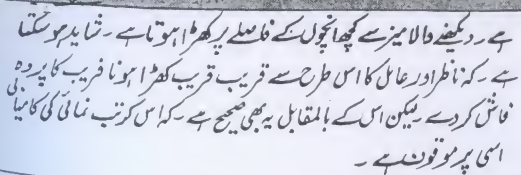 ہے۔ دیکھنے والا میز سے کچھ انچوں کے فاصلے پر کھڑا ہوتا ہے۔ شاید ہو سکتا
ہے۔ کہ ناظر اور عامل کا اس طرح سے قریب قریب کھڑا ہونا فریب کا پردہ
فاش کر دے۔ لیکن اس کے بالمقابل یہ بھی صحیح ہے۔ کہ اس کرتب نمائی کی کامیابی
اسی پر موقوف ہے۔